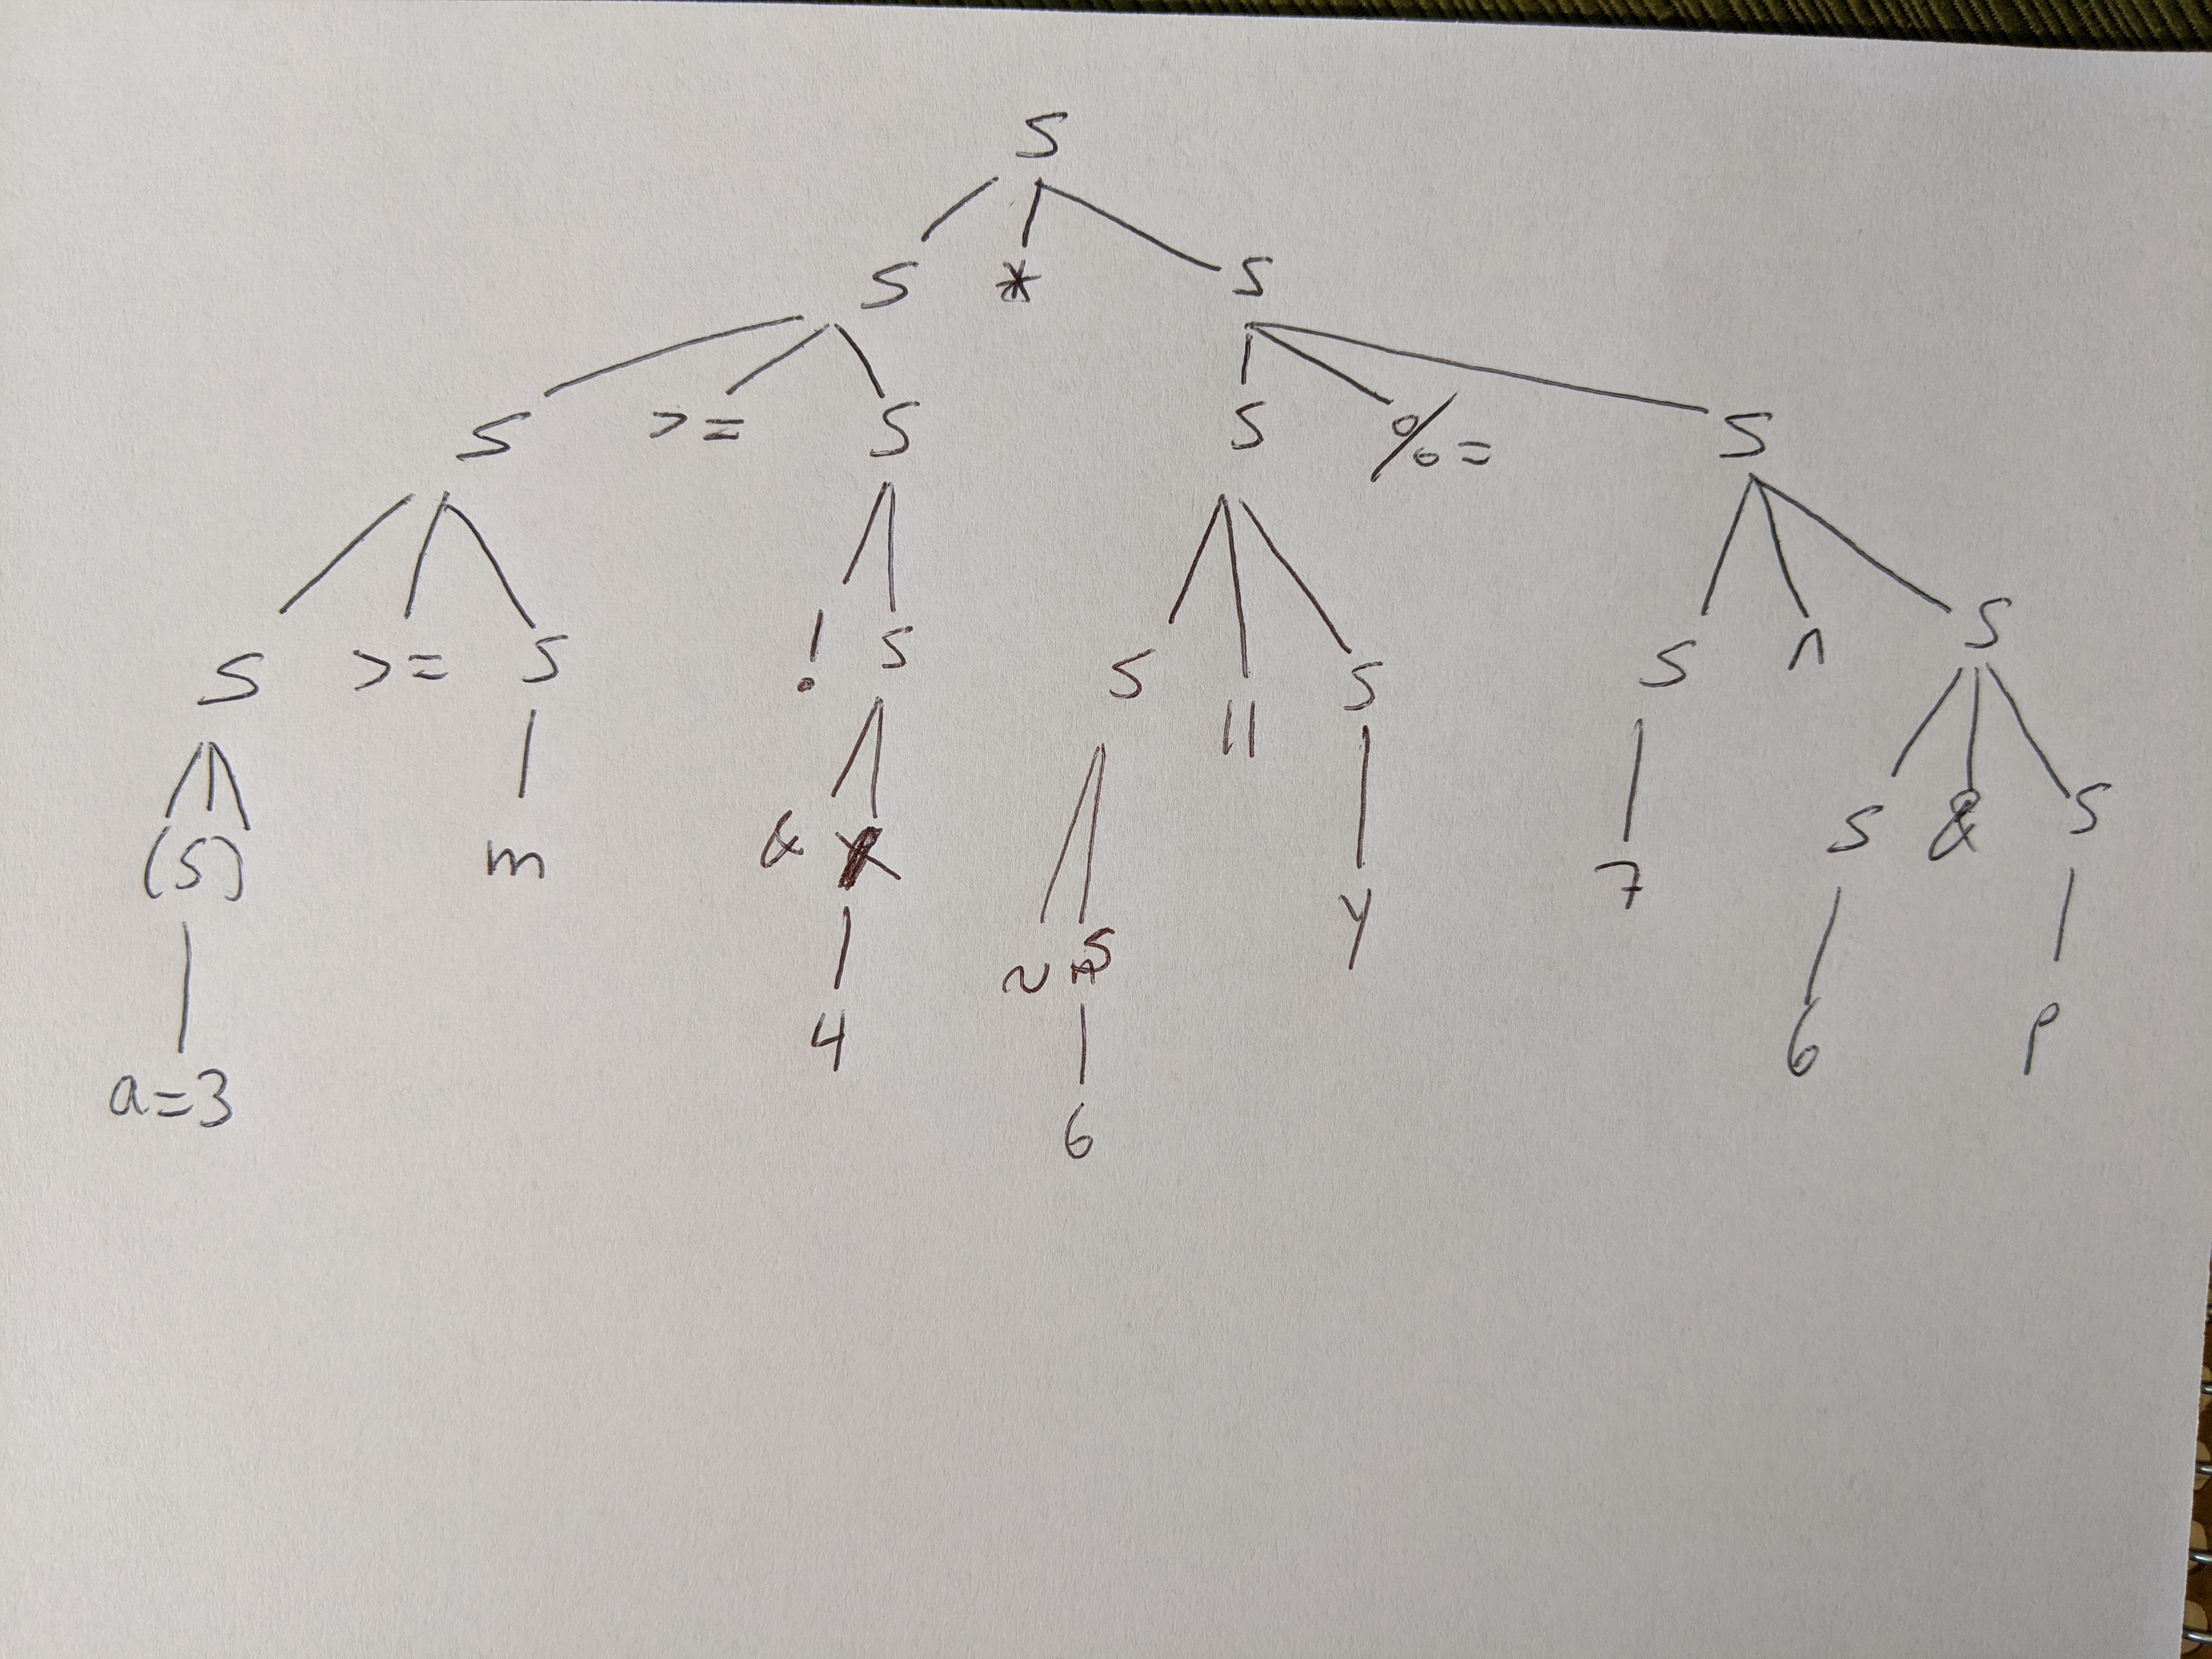 S
S * S
S >= S S %= S
S >= S ! S S || S S ^ S
(S) m & y 7 S & S
~ S
a=3 4 6 6 p